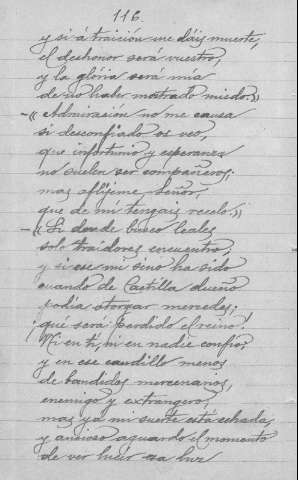 116.
y si á traición me dáis muerte,
el deshonor será vuestro,
y la glória será mía
de no haber mostrado miedo.»
—«Admiración no me causa
si desconfiado os veo,
que infortunio y esperanza
no suelen ser compañeros;
mas aflíjeme Señor,
que de mí tengais recelo.»
—«Si donde busco leales
solo traidores encuentro;
y si ese mi sino ha sido
cuando de Castilla dueño
podia otorgar mercedes;
¡qué será perdido el reino!
Ni en ti, ni en nadie confío,
y en ese caudillo menos
de bandidos mercenarios,
enemigo y extrangero,
mas ya mi suerte está echada,
y ansioso aguardo el momento
de ver lucir esa luz